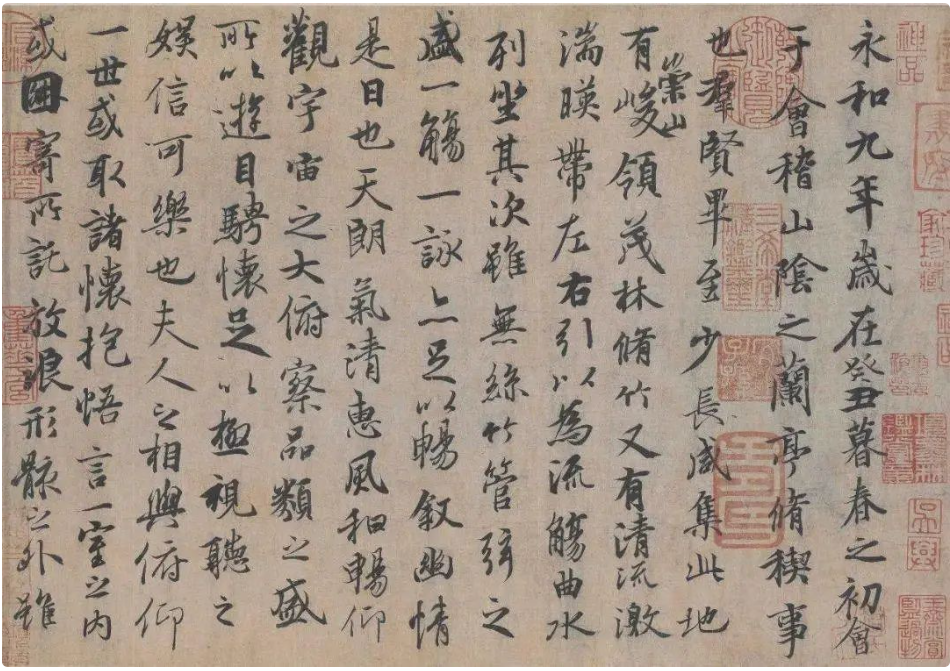 永和九年歲在癸丑暮春之初會
于會稽山陰之蘭亭脩稧事
也羣賢畢至少長咸集此地
有崇山峻領茂林脩竹又有清流激
湍暎帶左右引以為流觴曲水
列坐其次雖無絲竹管弦之
盛一觴一詠亦足以暢敘幽情
是日也天朗氣清惠風和暢仰
觀宇宙之大俯察品類之盛
所以遊目騁懷足以極視聽之
娛信可樂也夫人之相與俯仰
一世或取諸懷抱悟言一室之內
或因寄所託放浪形骸之外雖
神品
三希堂精鑑璽
宜子孫